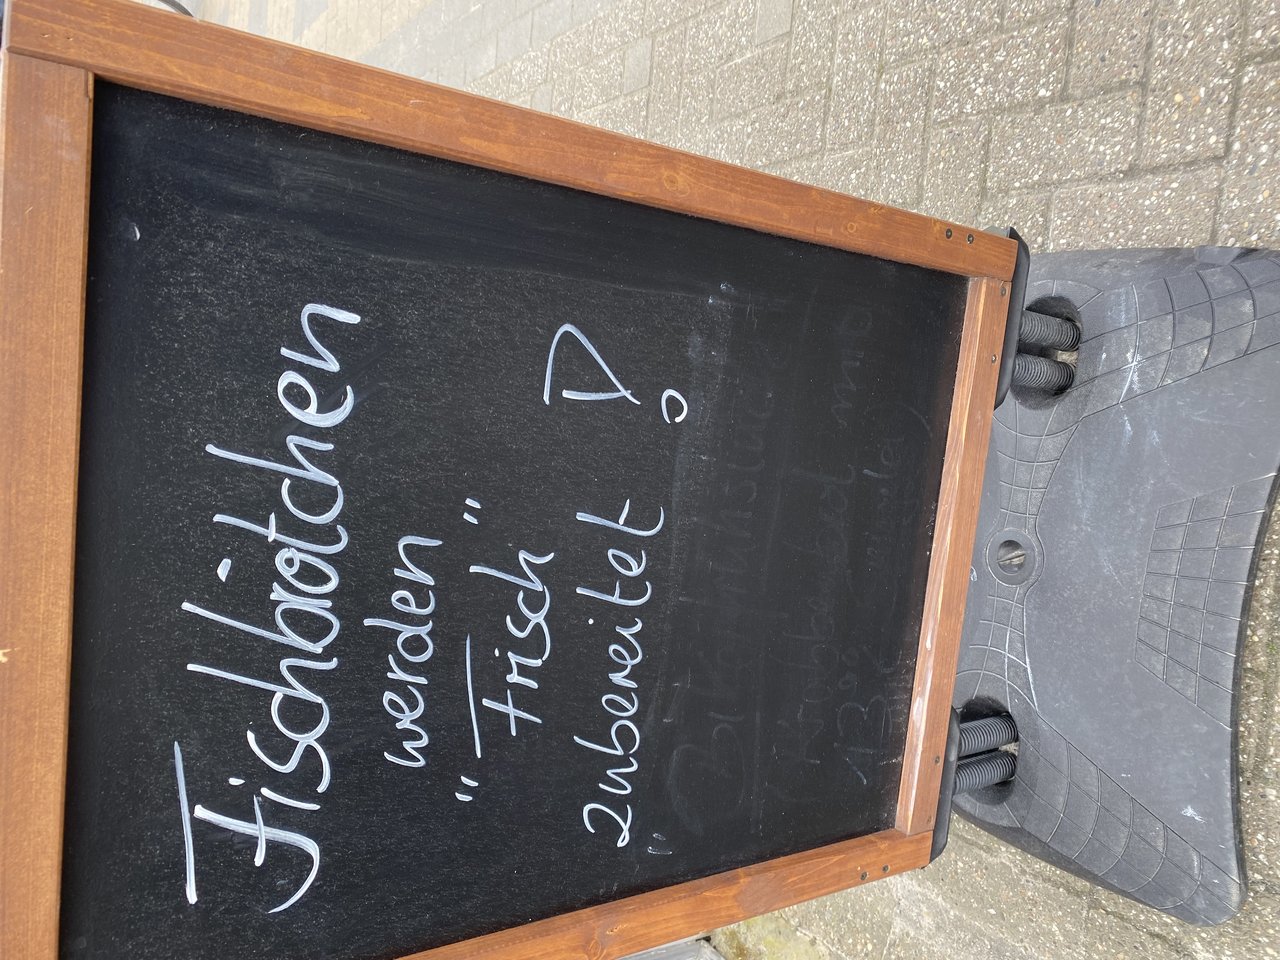 Fischbrötchen
werden
"Frisch"
zubereitet !